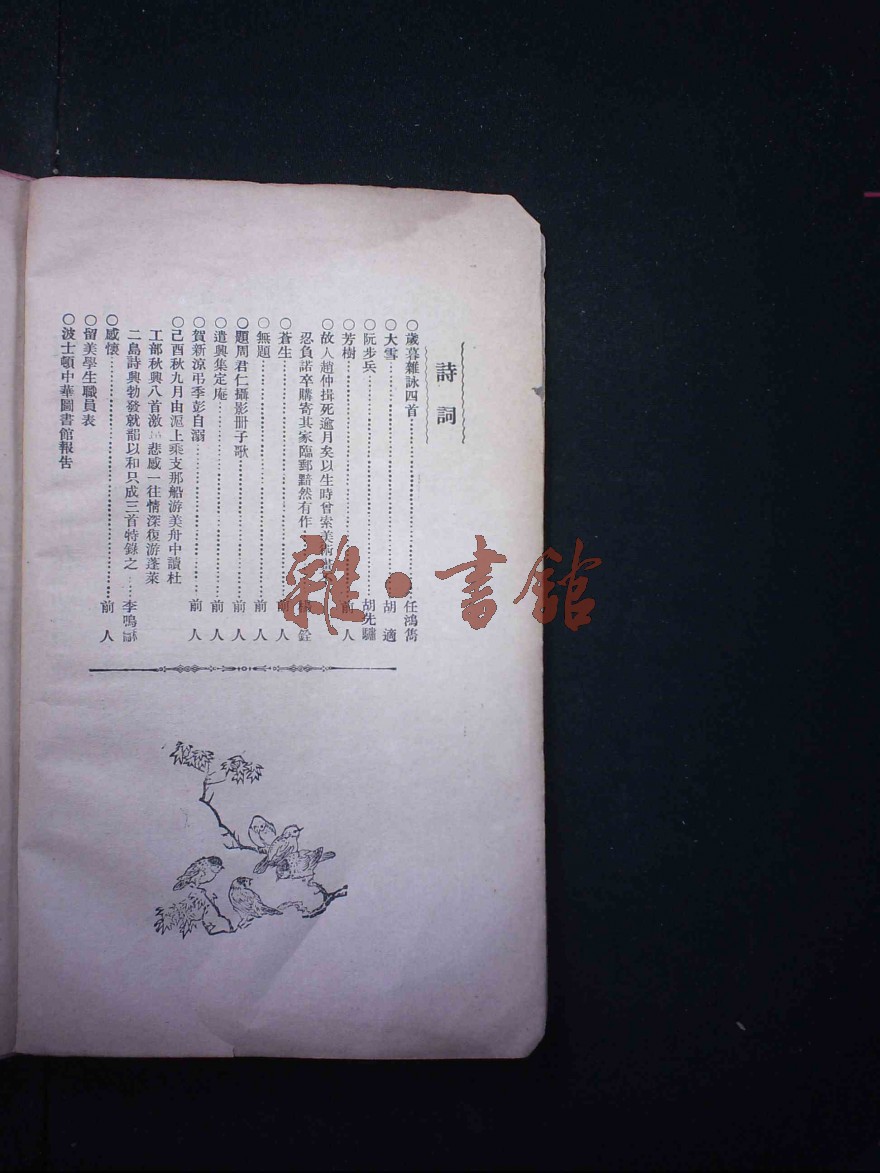 詩詞
○歲暮雜詠四首 任鴻雋
○大雪 胡適
○阮步兵 胡先驌
○芳樹 前人
○故人趙仲揖死逾月矣以生時曾索美術
忍負諾卒購寄其家臨郵黯然有作 銓
○蒼生 前人
○無題 前人
○題周君仁攝影册子歌 前人
○遣興集定庵 前人
○賀新涼弔季彭自溺 前人
○己酉秋九月由滬上乘支那船游美舟中讀杜
工部秋興八首激 悲感一往情深復游蓬萊
二島詩興勃發就韻以和只成三首特錄之 李鳴龢
○感懷 前人
○留美學生職員表
○波士頓中華圖書館報告
雜·書館